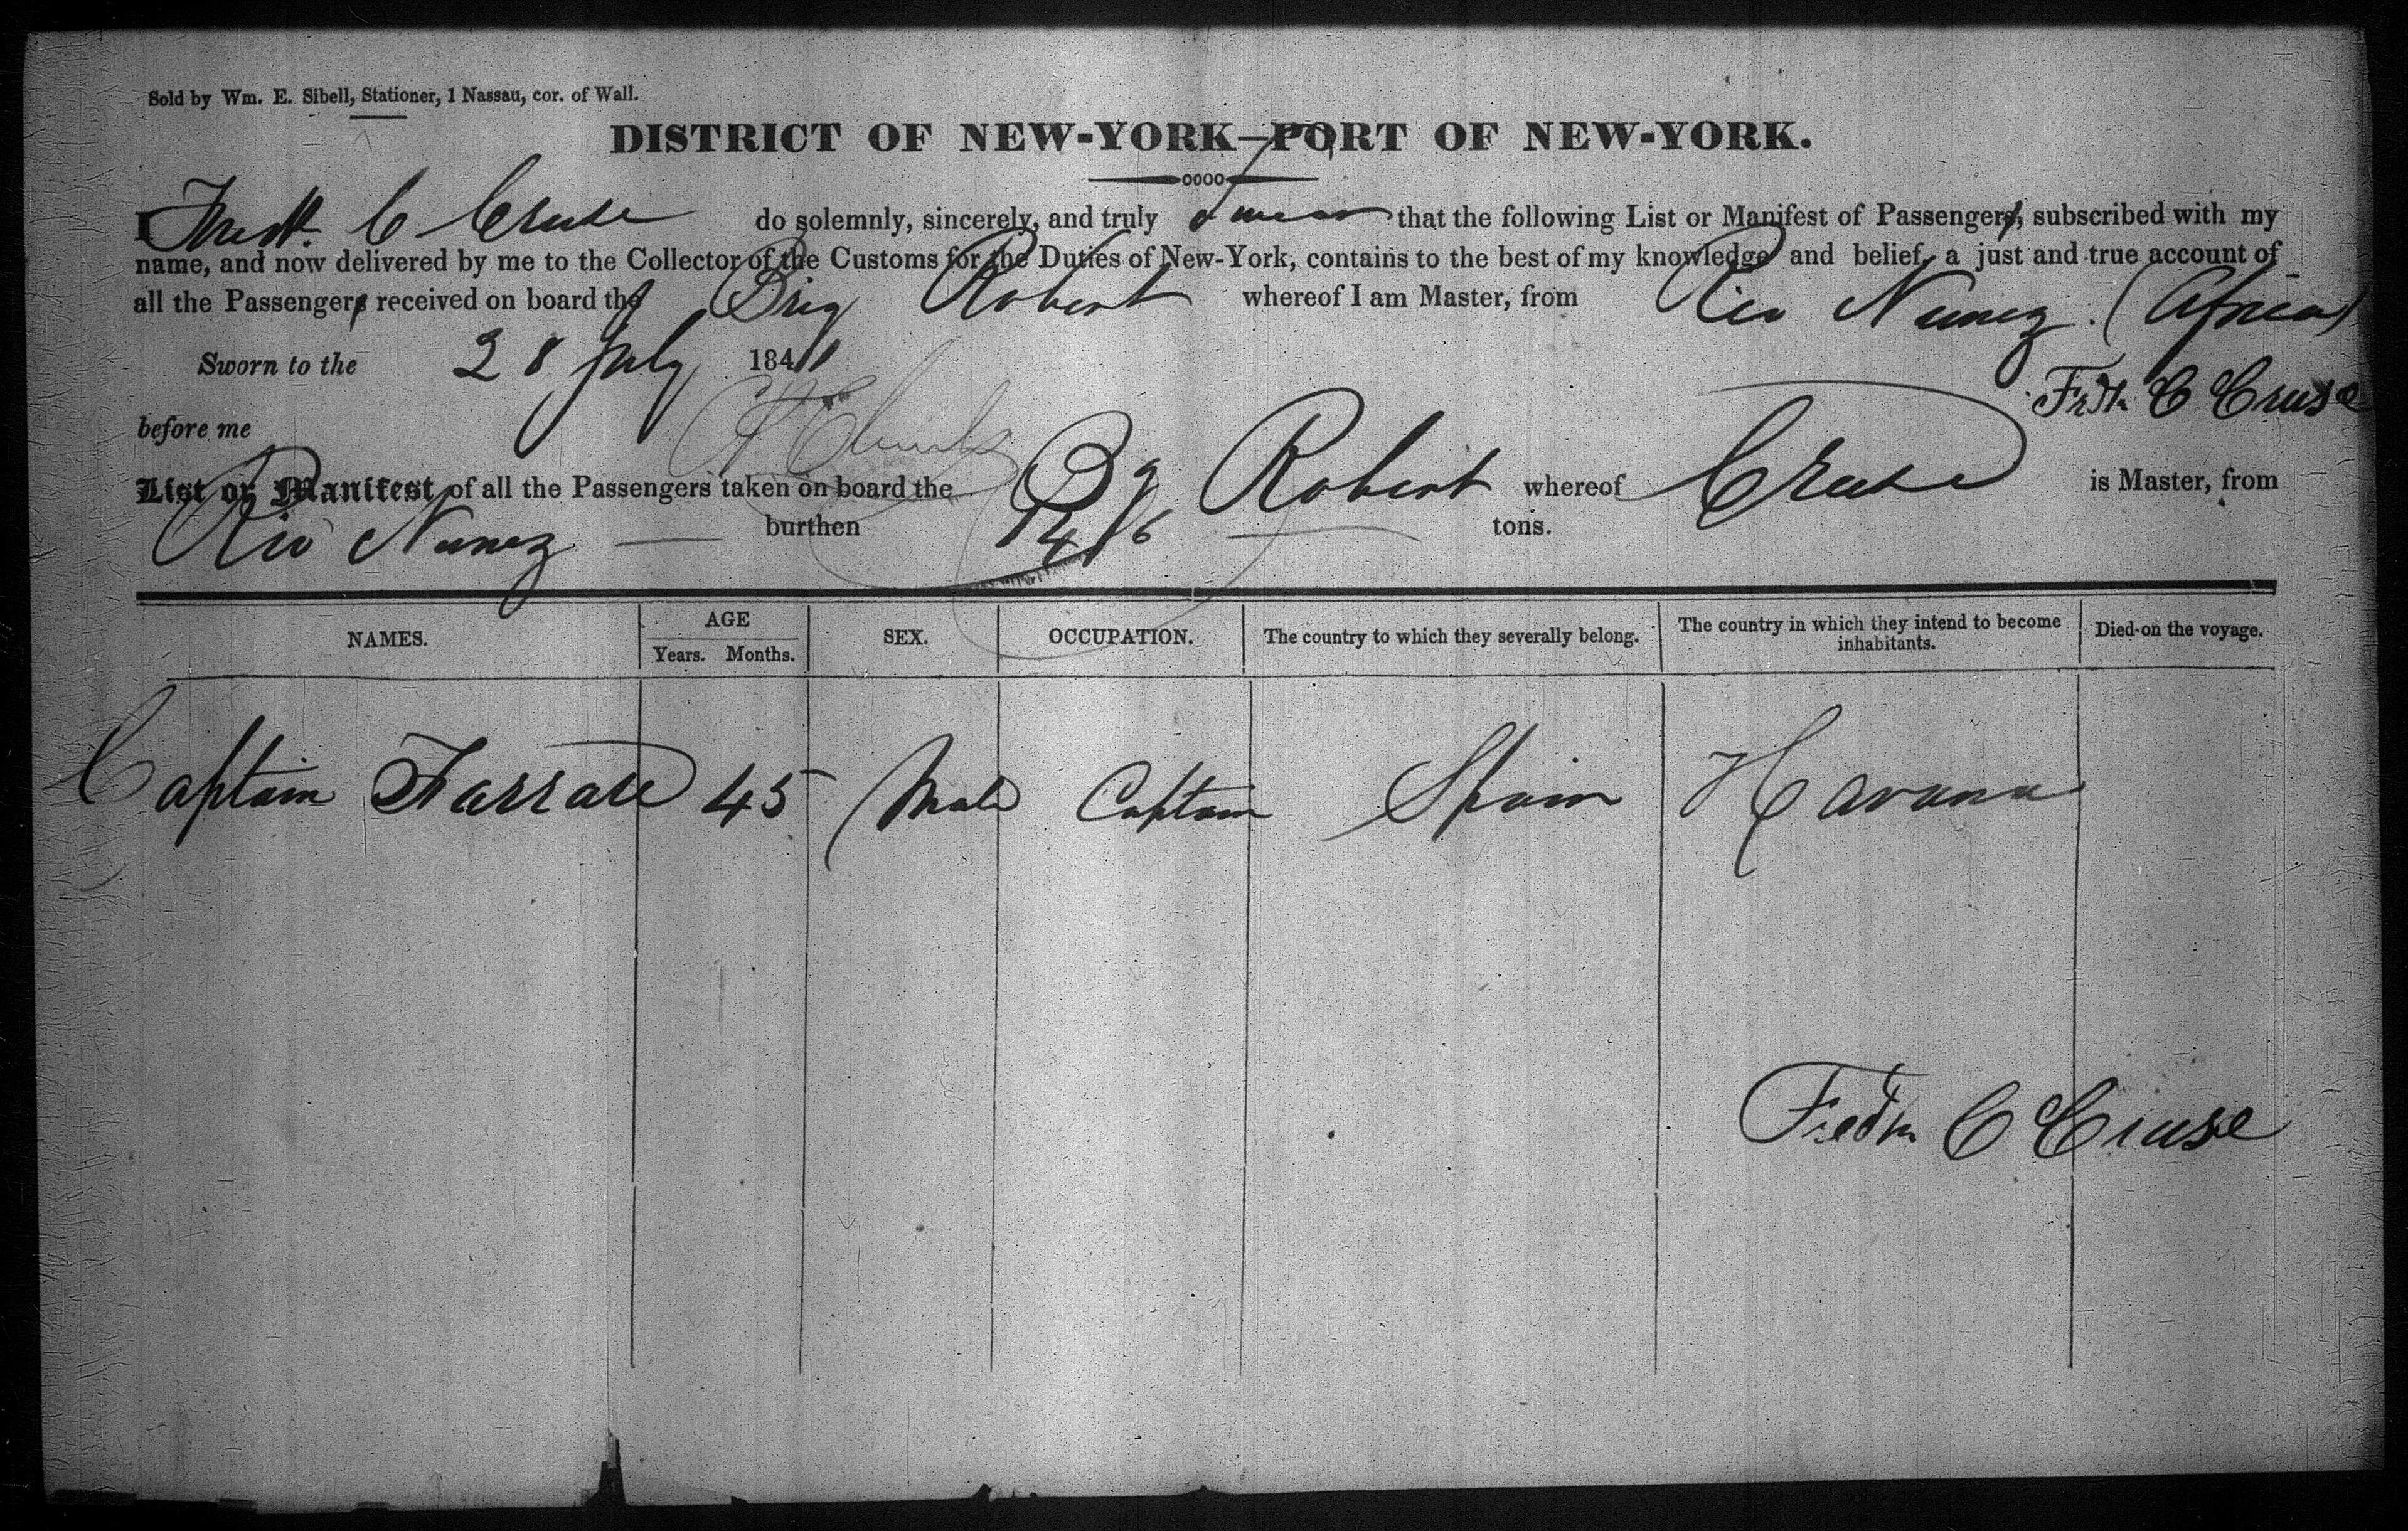 Sold by Wm. E. Sibell, Stationer, 1 Nassau, cor. of Wall.
DISTRICT OF NEW-YORK—PORT OF NEW-YORK.
I Fredk. C Cruse do solemnly, sincerely, and truly swear that the following List or Manifest of Passengers, subscribed with my
name, and now delivered by me to the Collector of the Customs for the Duties of New-York, contains to the best of my knowledge and belief, a just and true account of
all the Passengers received on board the Brig Robert whereof I am Master, from Rio Nunez. (Africa)
Sworn to the 28 July 1841
Fredk C Cruse
before me
List or Manifest of all the Passengers taken on board the Bg Robert whereof Cruse is Master, from
Rio Nunez — burthen tons.
NAMES. AGE SEX. OCCUPATION. The country to which they severally belong. The country in which they intend to become inhabitants. Died on the voyage.
Years. Months.
Captain 45 Male Captain Spain Havana
Fredk C Cruse